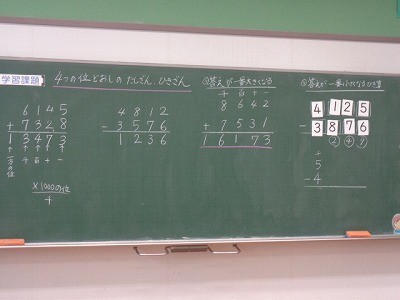 学習課題
4つの位どおしの たしざん、ひきざん
6145
+7328
13473
↑↑↑↑↑
一万の位 千 百 十 一
×1000の位
千
4812
-3576
1236
答えが一番大きくなる
千百十一
8642
+7531
16173
答えが一番小さくなるひき算
4125
-3876
249
5
-4